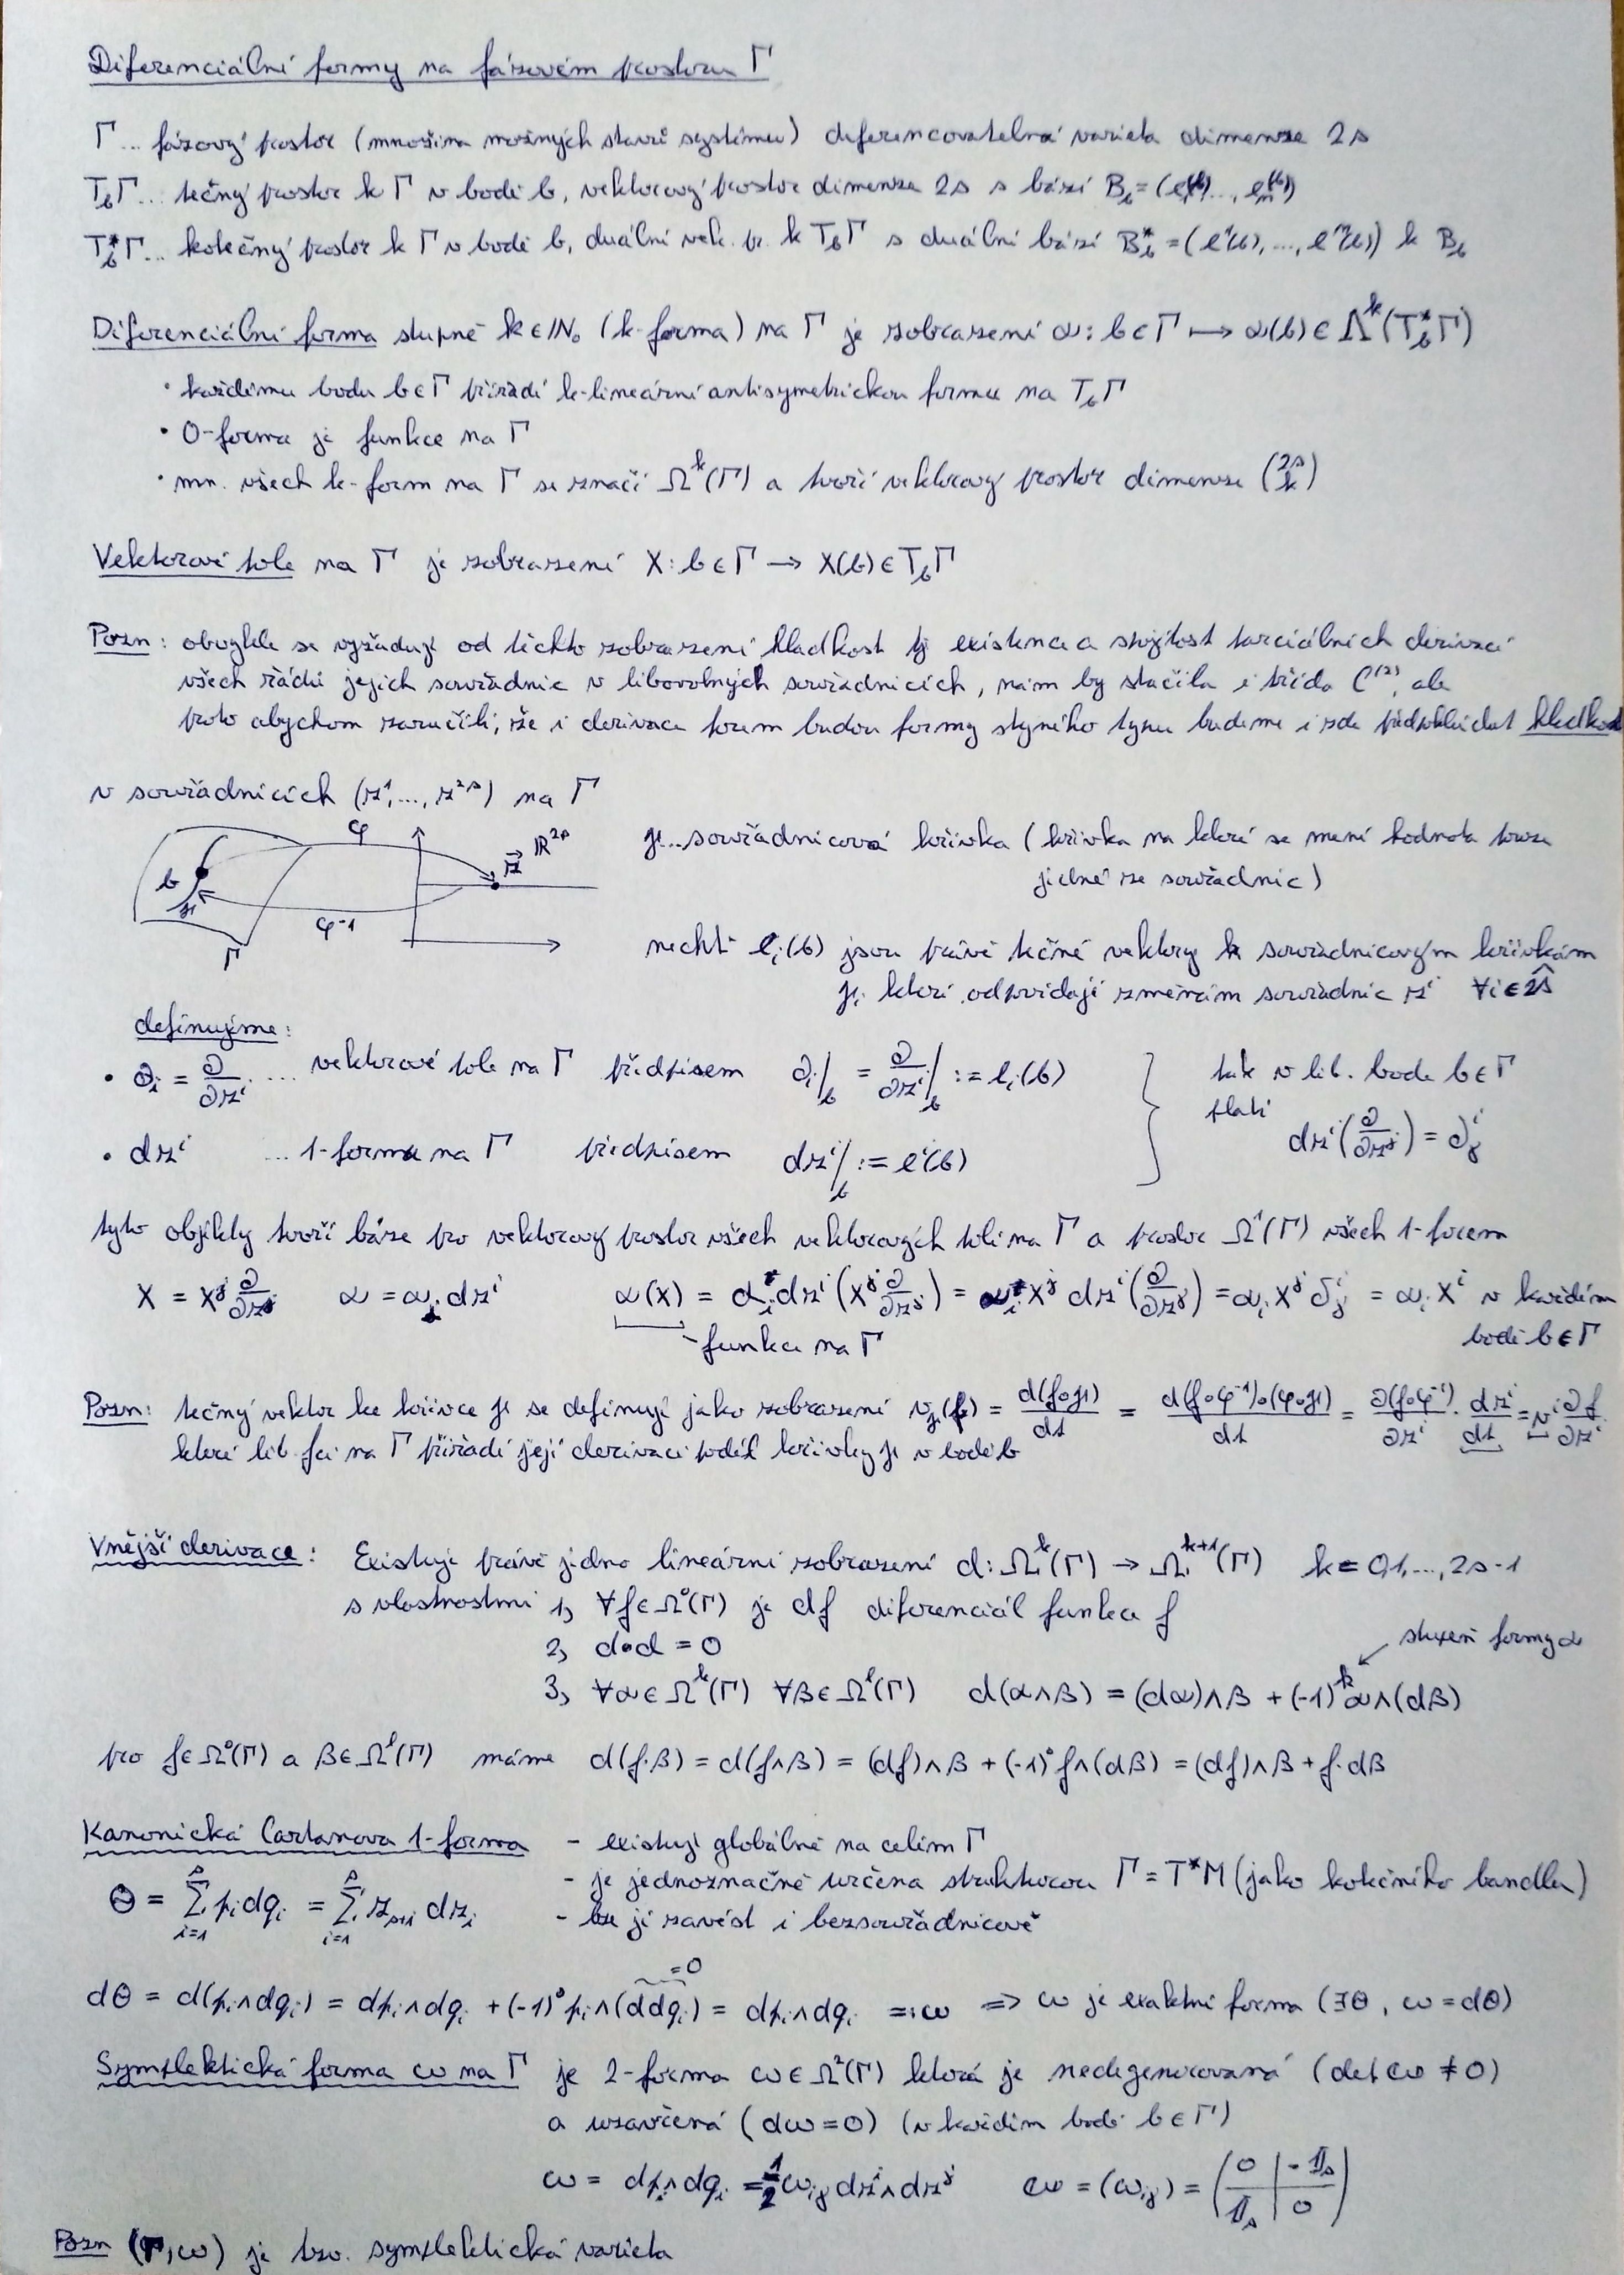 Diferenciální formy na fázovém prostoru Γ
Γ... fázový prostor (množina možných stavů systému) diferencovatelná varieta dimenze 2s
T_bΓ... tečný prostor k Γ v bodě b, vektorový prostor dimenze 2s s bází B_b = (e_1(b), ..., e_n(b))
T*_bΓ... kotečný prostor k Γ v bodě b, duální vek. pr. k T_bΓ s duální bází B*_b = (e^1(b), ..., e^n(b)) k B_b
Diferenciální forma stupně k ∈ ℕ₀ (k-forma) na Γ je zobrazení α: b ∈ Γ ⟼ α(b) ∈ Λ^k(T*_bΓ)
• každému bodu b ∈ Γ přiřadí k-lineární antisymetrickou formu na T_bΓ
• 0-forma je funkce na Γ
• mn. všech k-form na Γ se značí Ω^k(Γ) a tvoří vektorový prostor dimenze (2s k)
Vektorové pole na Γ je zobrazení X: b ∈ Γ → X(b) ∈ T_bΓ
Pozn: obvykle se vyžaduje od těchto zobrazení hladkost tj existence a spojitost parciálních derivací
všech řádů jejich souřadnic v libovolných souřadnicích, nám by stačila i třída C^(2), ale
proto abychom zaručili, že i derivace forem budou formy stejného typu budeme i zde předpokládat hladkost
v souřadnicích (z^1, ..., z^{2s}) na Γ
φ
b
γ
φ^-1
Γ
z⃗
ℝ^{2s}
γ... souřadnicová křivka (křivka na které se mění hodnota pouze
jedné ze souřadnic)
nechť e_i(b) jsou právě tečné vektory k souřadnicovým křivkám
γ_i které odpovídají změnám souřadnic z^i ∀i ∈ 2ŝ
definujme:
• ∂_i = ∂/∂z^i ... vektorové pole na Γ předpisem ∂_i|_b = ∂/∂z^i|_b := e_i(b)
• dz^i ... 1-forma na Γ předpisem dz^i|_b := e^i(b)
pak v lib. bodě b ∈ Γ
platí
dz^i(∂/∂z^j) = δ^i_j
tyto objekty tvoří báze pro vektorový prostor všech vektorových polí na Γ a prostor Ω^1(Γ) všech 1-forem
X = X^j ∂/∂z^j α = α_i dz^i α(X) = α_i dz^i (X^j ∂/∂z^j) = α_i X^j dz^i(∂/∂z^j) = α_i X^j δ^i_j = α_i X^i v každém
funkce na Γ bodě b ∈ Γ
Pozn: tečný vektor ke křivce γ se definuje jako zobrazení v_γ(f) = d(f∘γ)/dt = d(f∘φ^-1)∘(φ∘γ)/dt = ∂(f∘φ^-1)/∂z^i · dz^i/dt = v^i ∂f/∂z^i
které lib. fci na Γ přiřadí její derivaci podél křivky γ v bodě b
Vnější derivace: Existuje právě jedno lineární zobrazení d: Ω^k(Γ) → Ω^{k+1}(Γ) k = 0,1,...,2s-1
s vlastnostmi 1, ∀f ∈ Ω^0(Γ) je df diferenciál funkce f
2, d∘d = 0
stupeň formy α
3, ∀α ∈ Ω^k(Γ) ∀β ∈ Ω^l(Γ) d(α∧β) = (dα)∧β + (-1)^k α∧(dβ)
pro f ∈ Ω^0(Γ) a β ∈ Ω^l(Γ) máme d(f·β) = d(f∧β) = (df)∧β + (-1)^0 f∧(dβ) = (df)∧β + f·dβ
Kanonická Cartanova 1-forma - existuje globálně na celém Γ
- je jednoznačně určena strukturou Γ = T*M (jako kotečného bandlu)
Θ = Σ_{i=1}^s p_i dq_i = Σ_{i=1}^s z_{s+i} dz_i - lze ji zavést i bezsouřadnicově
= 0
dΘ = d(p_i∧dq_i) = dp_i∧dq_i + (-1)^0 p_i∧(ddq_i) = dp_i∧dq_i =: ω ⇒ ω je exaktní forma (∃Θ, ω = dΘ)
Symplektická forma ω na Γ je 2-forma ω ∈ Ω^2(Γ) která je nedegenerovaná (det ω ≠ 0)
a uzavřená (dω = 0) (v každém bodě b ∈ Γ)
ω = dp_i∧dq_i = 1/2 ω_ij dz^i∧dz^j ω = (ω_ij) = (0 | -𝟙_s / 𝟙_s | 0)
Pozn (Γ, ω) je tzv. symplektická varieta